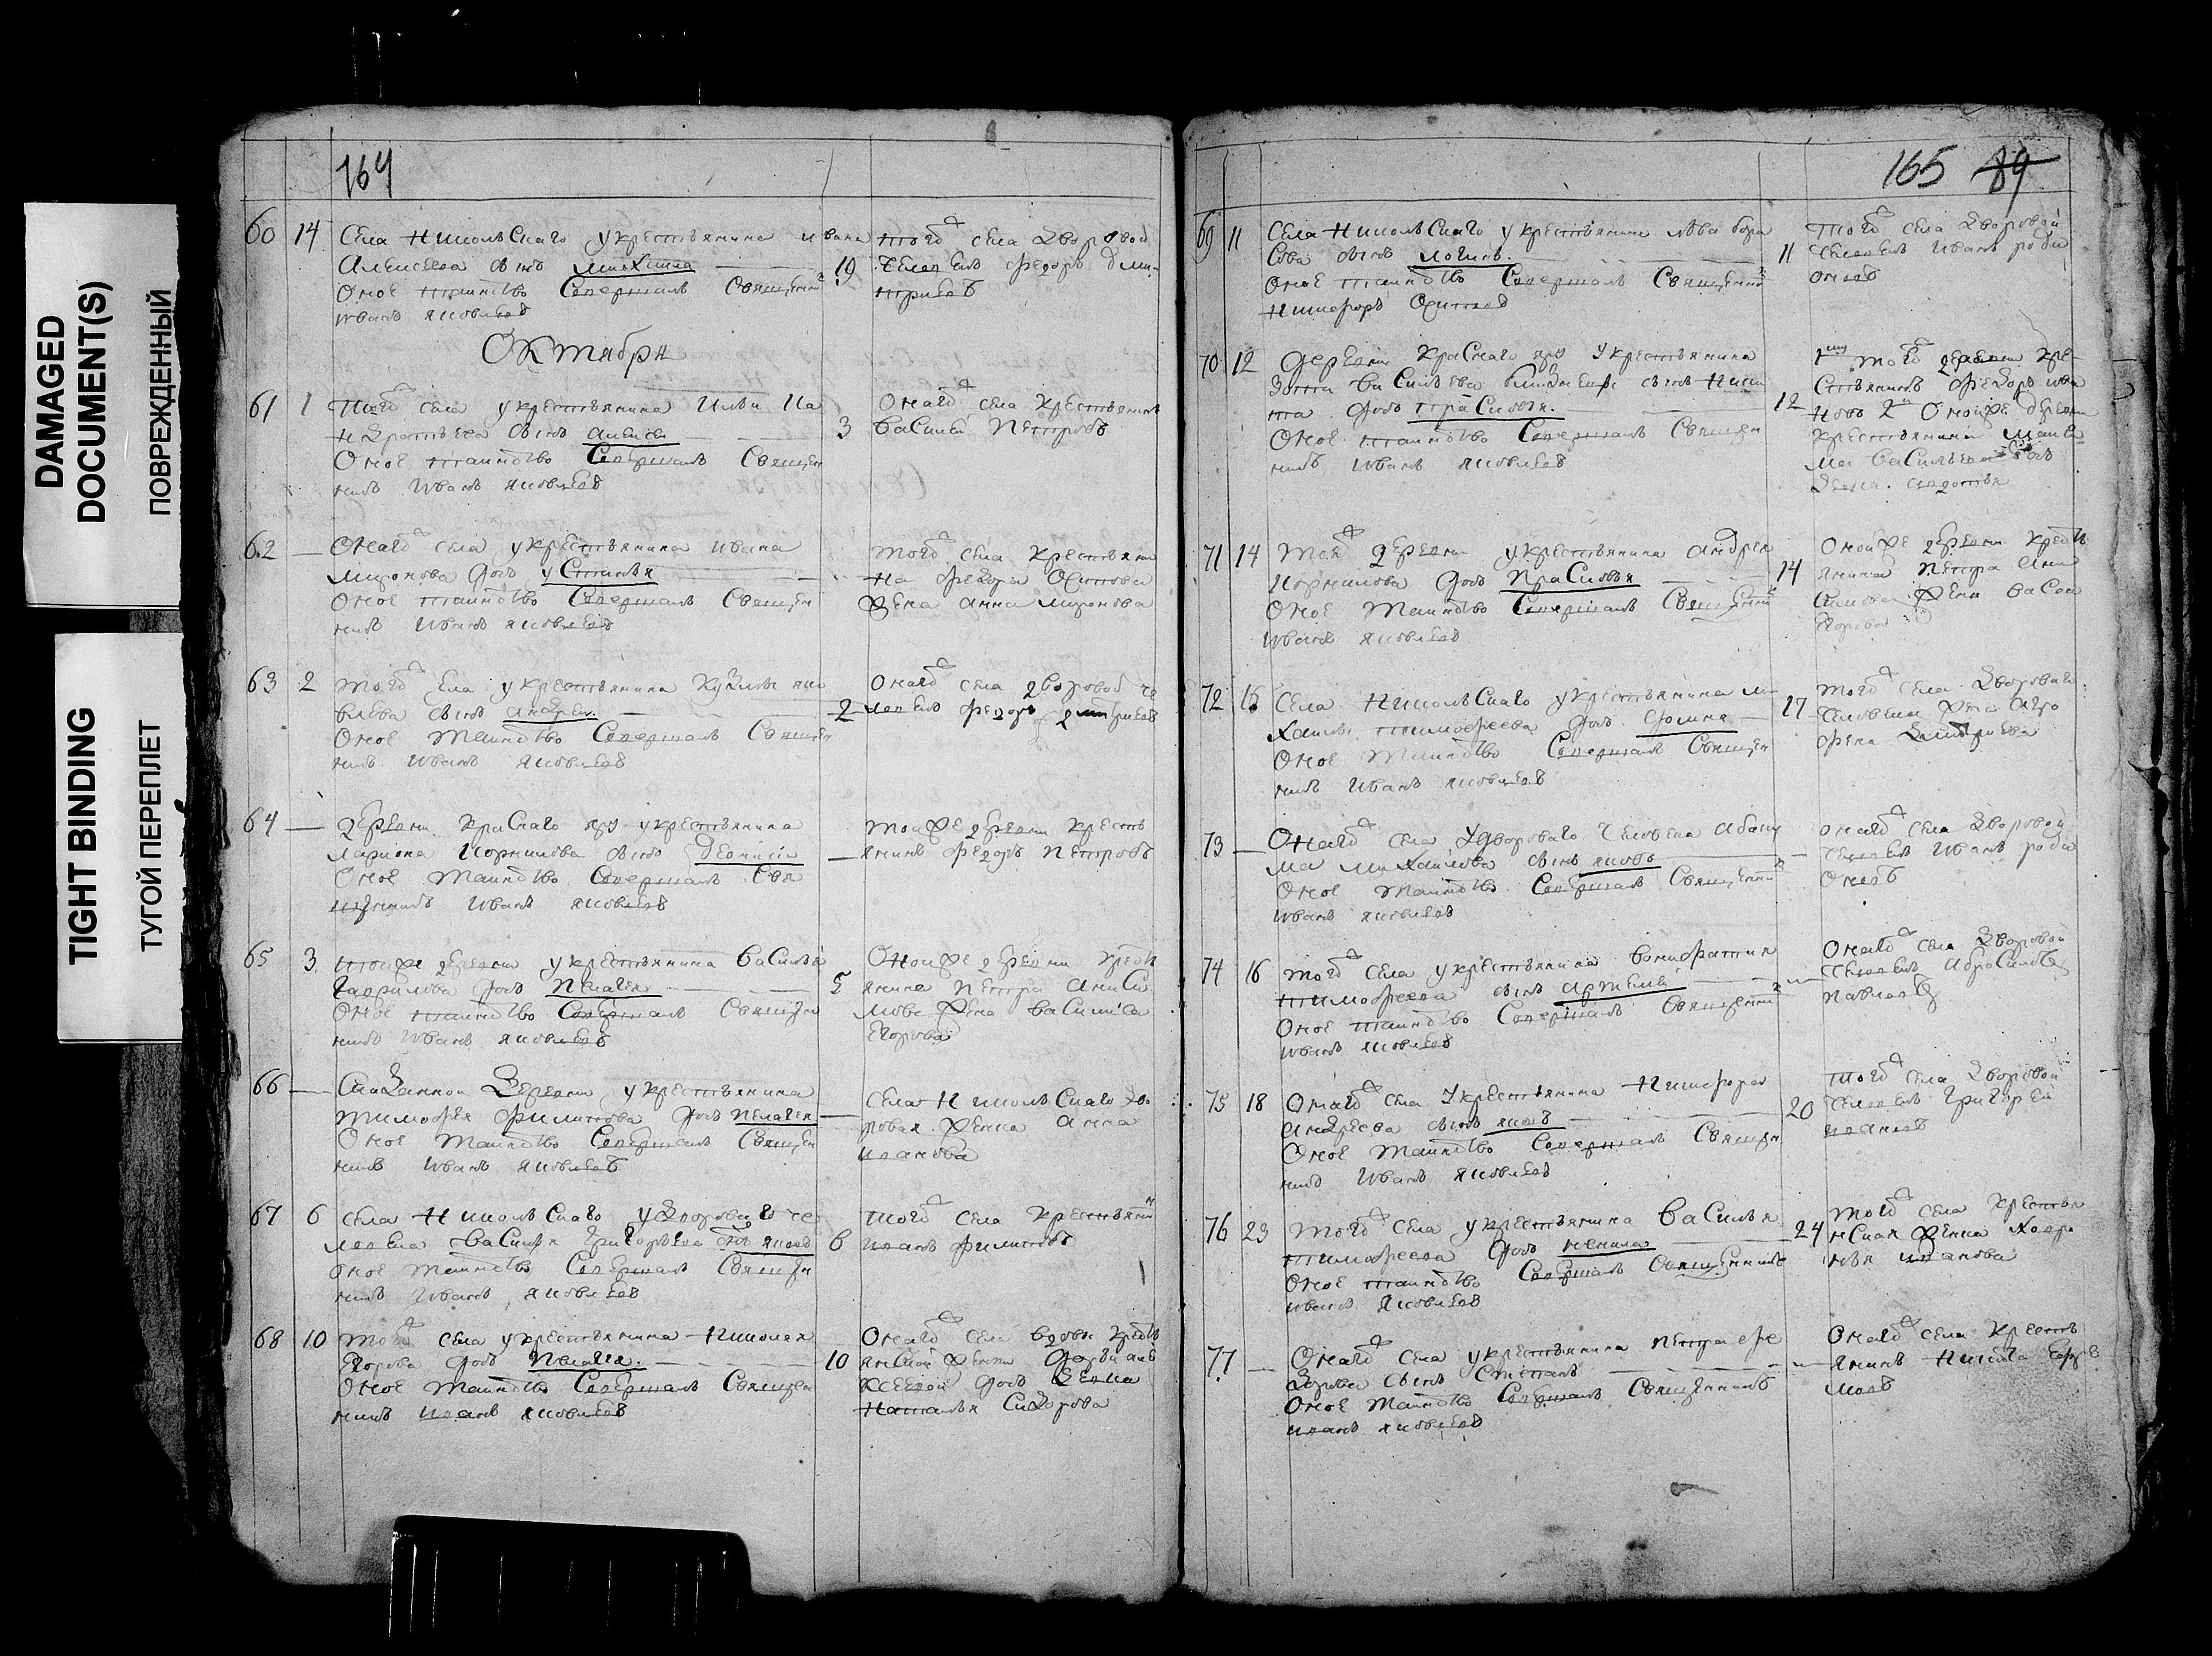 DAMAGED
DOCUMENT(S)
ПОВРЕЖДЕННЫЙ
TIGHT BINDING
ТУГОЙ ПЕРЕПЛЕТ
164
60 14 Села Никольскаго у крестьянина ивана
Алексеева сынъ михаила
Оное таинство Совершалъ Священник
иванъ яковлевъ
19 тогож села дворовой
человекъ федоръ дми-
триевъ
Октября
61 1 тогож села у крестьянина Ильи Иг
натьева сынъ алексей
Оное таинство Совершалъ Священ
никъ иванъ яковлевъ
3 Онагож села крестьянинъ
василей петровъ
62 — Онагож села у крестьянина ивана
миронова дочь устинья
Оное таинство Совершалъ Священ
никъ иванъ яковлевъ
тогож села крестьяни
на федора Осипова
жена анна миронова
63 2 тогож села у крестьянина кузмы яко
влева сынъ андрей
Оное таинство Совершалъ Священ
никъ иванъ яковлевъ
2 Онагож села дворовой че
ловекъ федоръ дмитриевъ
64 — деревни Краснаго яру у крестьянина
лариона корнилова сынъ Деонисии
Оное таинство Совершалъ Свя
щенникъ иванъ яковлевъ
— тоиже деревни кресть
янинъ федоръ петровъ
65 3 тоиже деревни у крестьянина василья
гаврилова дочь пелагея
Оное таинство Совершалъ Священ
никъ иванъ яковлевъ
5 Оноиже деревни крестъ
янина петра аниси
мова жена василиса
Егорова
66 — Сказанной деревни у крестьянина
тимофея филипова дочь пелагея
Оное таинство Совершалъ Священ
никъ иванъ яковлевъ
— Села Никольскаго дво
ровая женка анна
иванова
67 6 села Никольскаго у двороваго че
ловека василья григорьева сынъ яковъ
Оное таинство Совершалъ Священ
никъ иванъ яковлевъ
6 тогож села крестьянин
иванъ филиповъ
68 10 тогож села у крестьянина Николая
Егорова дочь пелагея
Оное таинство Совершалъ Священ
никъ иванъ яковлевъ
10 Онагож села вдовы кресть
янской женки
дочь девка
Наталья Сидорова
165 89
69 11 Села Никольскаго у крестьянина льва бори
сова сынъ логинъ
Оное таинство Совершалъ Священник
Никифоръ Осиповъ
11 тогож села дворовой
человекъ иванъ роди
оновъ
70 12 деревни Краснаго яру у крестьянина
васильева близнецы сынъ Ники
та дочь прасковья
Оное таинство Совершалъ Священ
никъ иванъ яковлевъ
12 1му тойж деревни кре-
стьянинъ федоръ ива
новъ 2й Оноиже деревни
крестьянина
васильева дочь
девка
71 14 тояж деревни у крестьянина андрея
корнилова дочь прасковья
Оное таинство Совершалъ Священник
иванъ яковлевъ
14 Оноиже деревни кресть
янина петра ани
симова жена васса
Егорова
72 15 Села Никольскаго у крестьянина ми
хаилы тимофеева дочь фомина
Оное таинство Совершалъ Священ
никъ иванъ яковлевъ
17 тогож села двороваго
человека жена агро
фена дмитриева
73 — Онагож села у двороваго человека абаку
ма михаилова сынъ яковъ
Оное таинство Совершалъ Священник
иванъ яковлевъ
— онагож села дворовой
человекъ иванъ роди
оновъ
74 16 тогож села у крестьянина вонифатия
тимофеева сынъ артемей
Оное таинство Совершалъ Священник
иванъ яковлевъ
— Онагож села дворовой
человекъ абросимъ
павловъ
75 18 Онагож села у крестьянина Никифора
андреева сынъ яковъ
Оное таинство Совершалъ Священ
никъ иванъ яковлевъ
20 тогож села дворовой
человекъ григорей
ивановъ
76 23 тогож села у крестьянина василья
тимофеева дочь ненила
Оное таинство Совершалъ Священникъ
иванъ яковлевъ
24 тогож села крестьян
ская женка хавро
нья иванова
77 — Онагож села у крестьянина петра фе
дорова сынъ Степанъ
Оное таинство Совершалъ Священникъ
иванъ яковлевъ
— Онагож села кресть
янинъ Никита ефре
мовъ